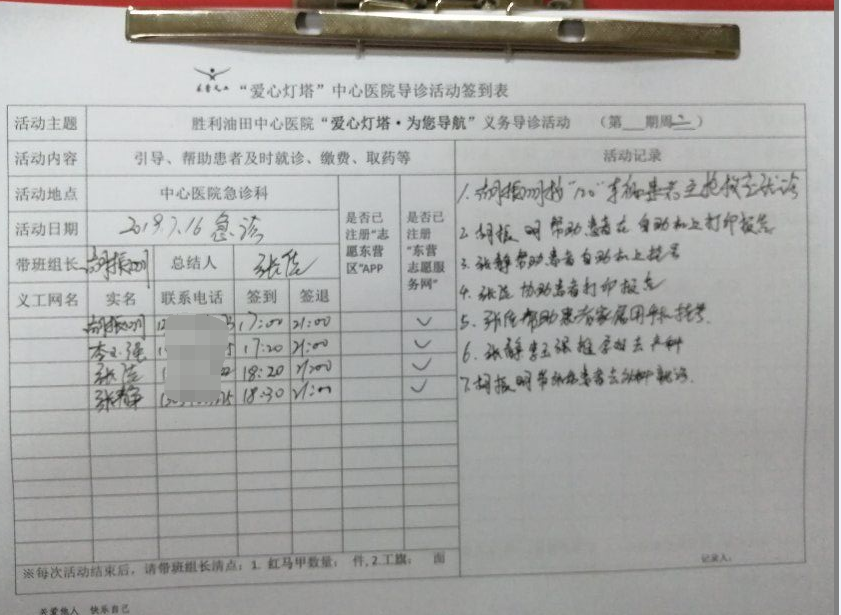 “爱心灯塔”中心医院导诊活动签到表
活动主题 胜利油田中心医院“爱心灯塔·为您导航”义务导诊活动 （第 期周二）
活动内容 引导、帮助患者及时就诊、缴费、取药等 活动记录
活动地点 中心医院急诊科
活动日期 2019.7.16 急诊
是否已注册“志愿东营区”APP
是否已注册“东营志愿服务网”
带班组长 胡振明 总结人 张佳
义工网名 实名 联系电话 签到 签退
胡振明 17:00 21:00
李玉强 17:20 21:00
张佳 18:20 21:00
张静 18:30 21:00
1. 胡振明接“120”车辆患者至抢救室就诊
2. 胡振明帮助患者在自动机上打印报告
3. 张静帮助患者自动机上挂号
4. 张佳协助患者打印报告
5. 张佳帮助患者家属用手机挂号.
6. 张静李玉强推 去产科
7. 胡振明带 患者去 科就诊.
记录人：
※每次活动结束后，请带班组长清点：1. 红马甲数量： 件,2.工旗： 面
关爱他人 快乐自己